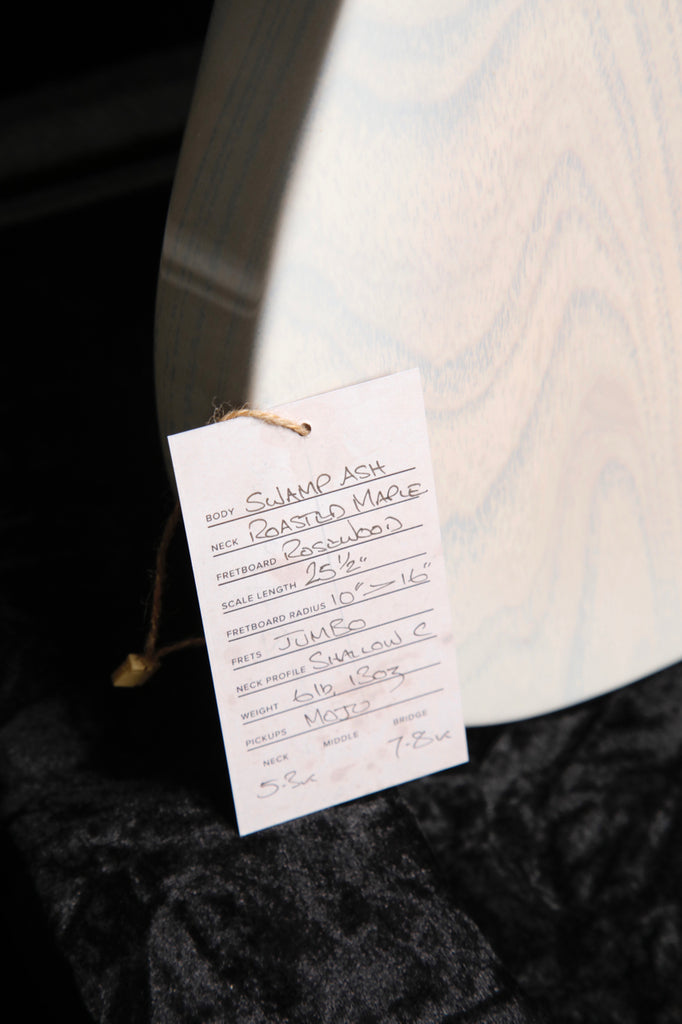 BODY SWAMP ASH
NECK ROASTED MAPLE
FRETBOARD ROSEWOOD
SCALE LENGTH 25 1/2"
FRETBOARD RADIUS 10" > 16"
FRETS JUMBO
NECK PROFILE SHALLOW C
WEIGHT 6lb, 13oz
PICKUPS MOJO
NECK MIDDLE BRIDGE
5.3K 7.8K